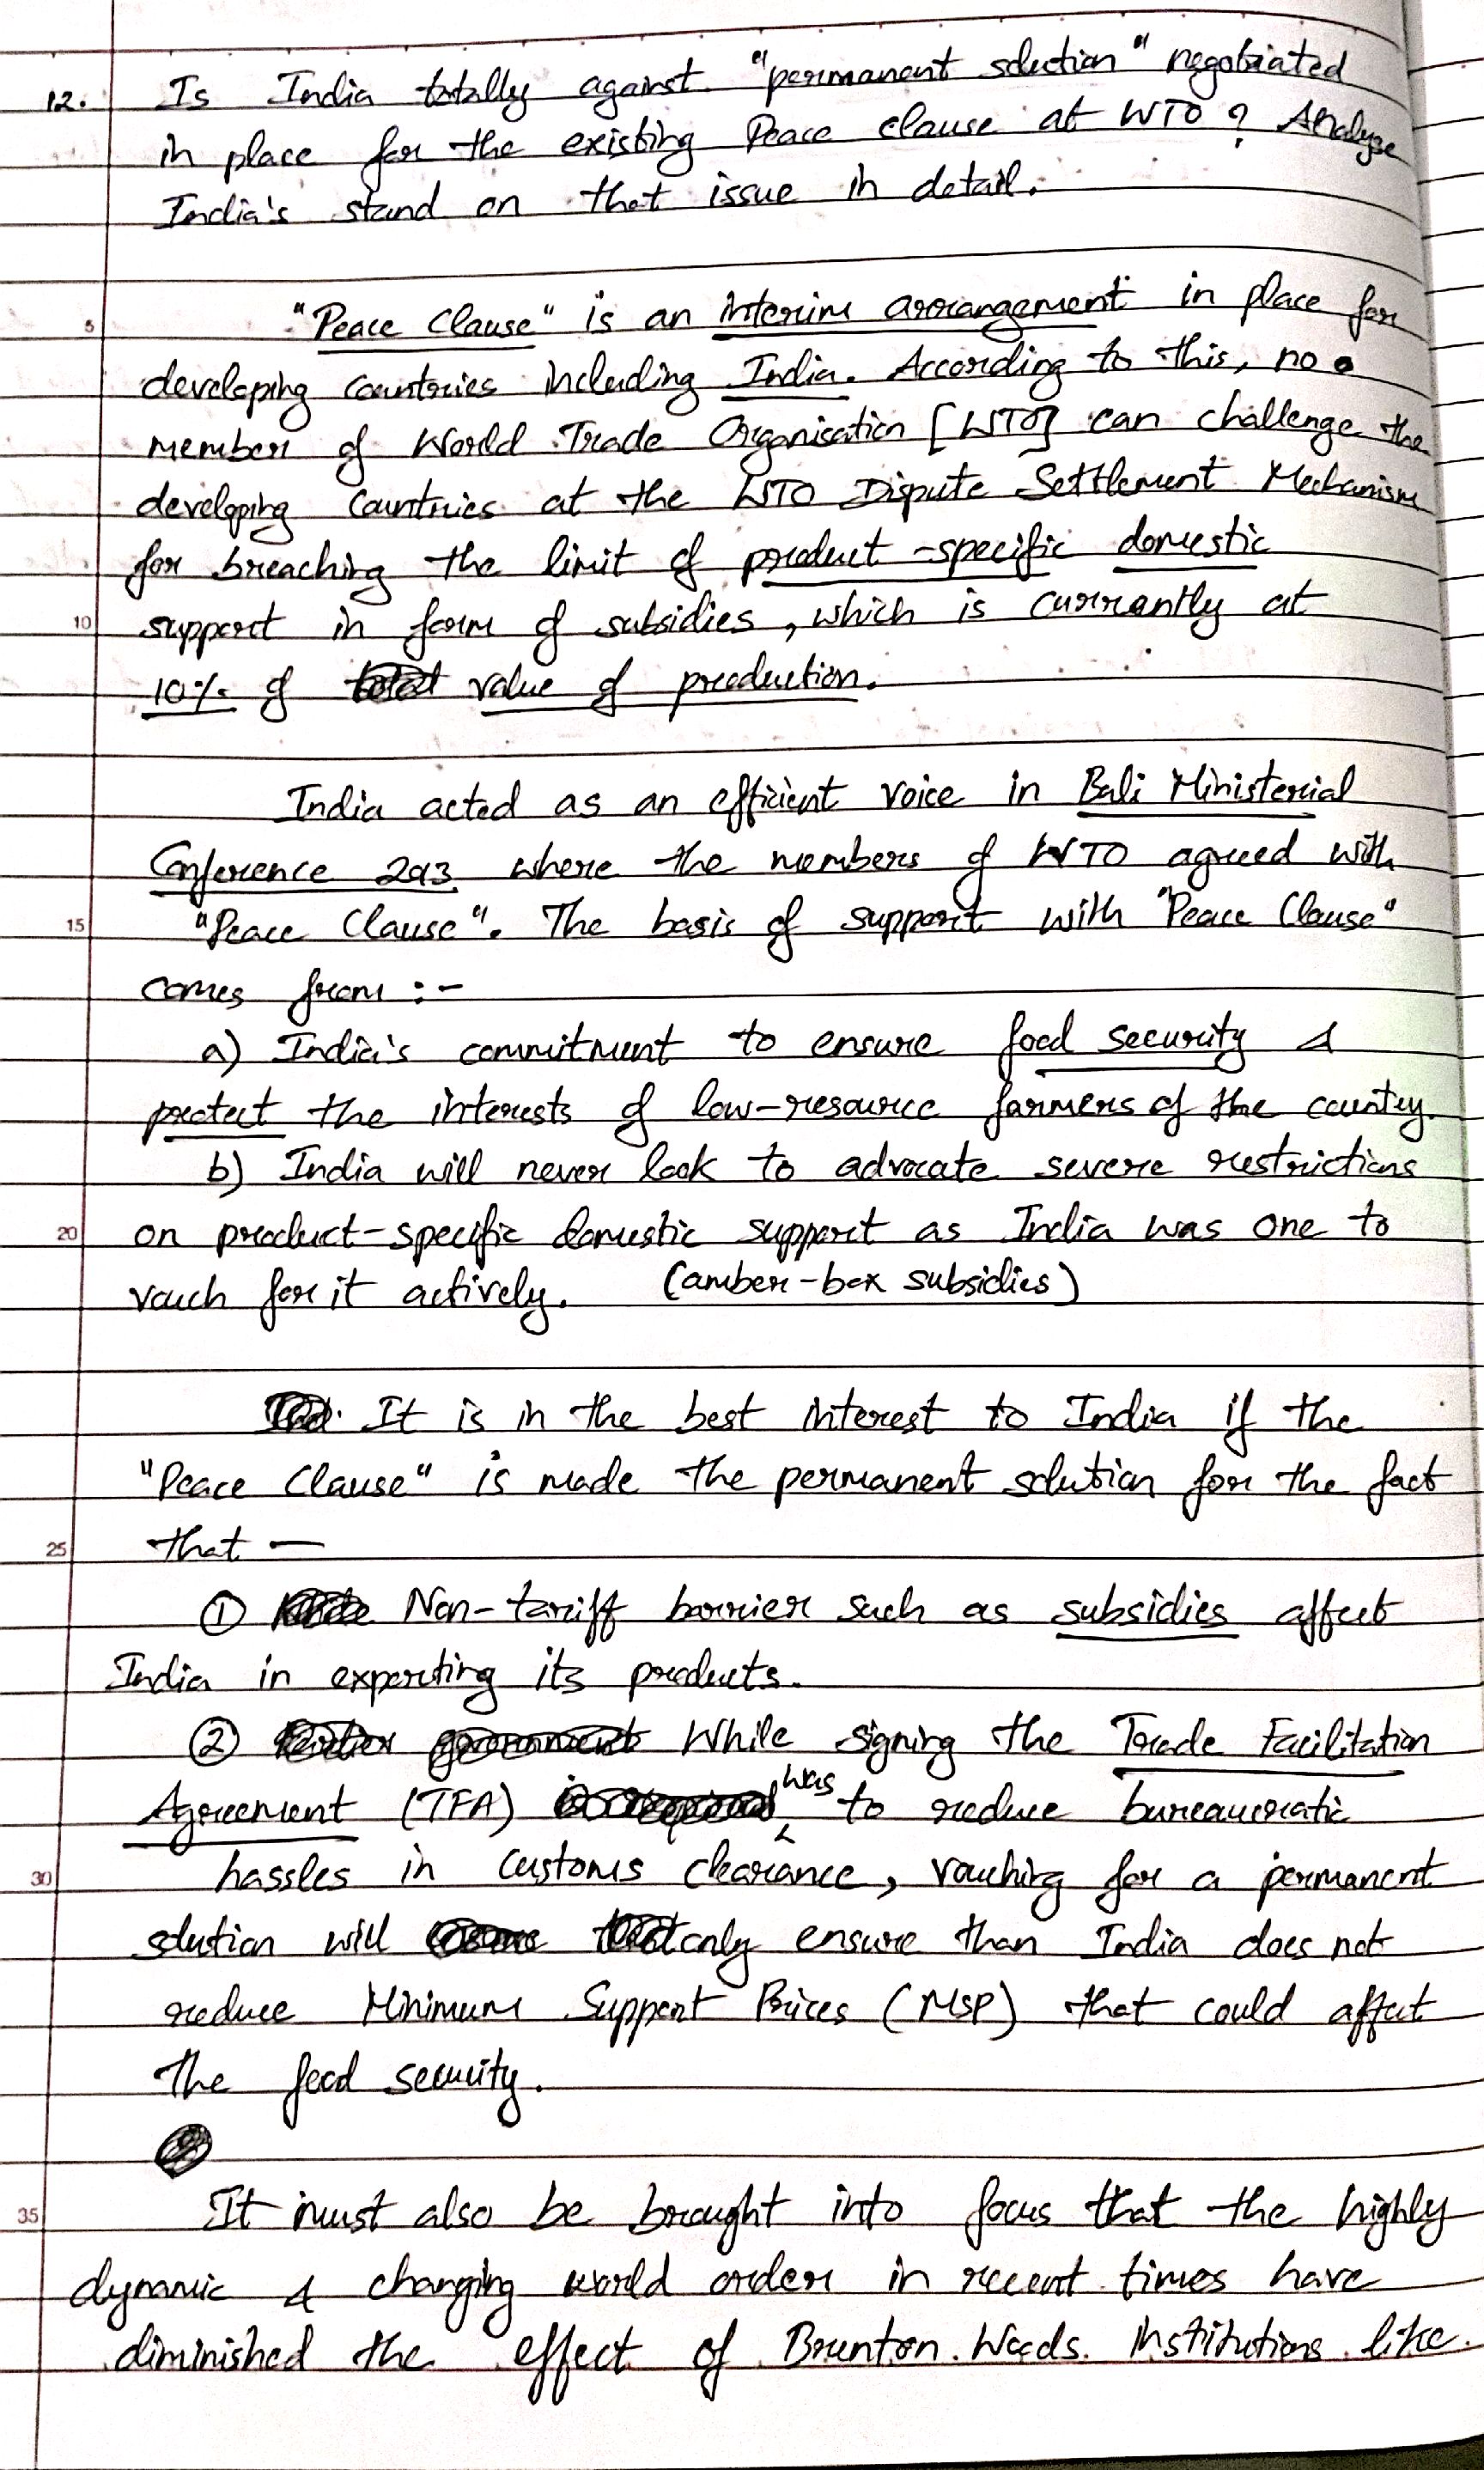 12. Is India totally against "permanent solution" negotiated
in place for the existing Peace clause at WTO? Analyse
India's stand on that issue in detail.
5 "Peace Clause" is an interim arrangement in place for
developing countries including India. According to this, no
member of World Trade Organisation [WTO] can challenge the
developing countries at the WTO Dispute Settlement Mechanism
for breaching the limit of product-specific domestic
10 support in form of subsidies, which is currently at
10% of value of production.
India acted as an efficient voice in Bali Ministerial
Conference 2013 where the members of WTO agreed with
15 "Peace Clause". The basis of support with "Peace Clause"
comes from :-
a) India's commitment to ensure food security &
protect the interests of low-resource farmers of the country.
b) India will never look to advocate severe restrictions
20 on product-specific domestic support as India was one to
vouch for it actively. (amber-box subsidies)
It is in the best interest to India if the
"Peace Clause" is made the permanent solution for the fact
25 that —
① Non-tariff barrier such as subsidies affect
India in exporting its products.
② While signing the Trade Facilitation
Agreement (TFA) was to reduce bureaucratic
30 hassles in customs clearance, vouching for a permanent
solution will only ensure than India does not
reduce Minimum Support Prices (MSP) that could affect
the food security.
35 It must also be brought into focus that the highly
dynamic & changing world order in recent times have
diminished the effect of Brenton Woods institutions like